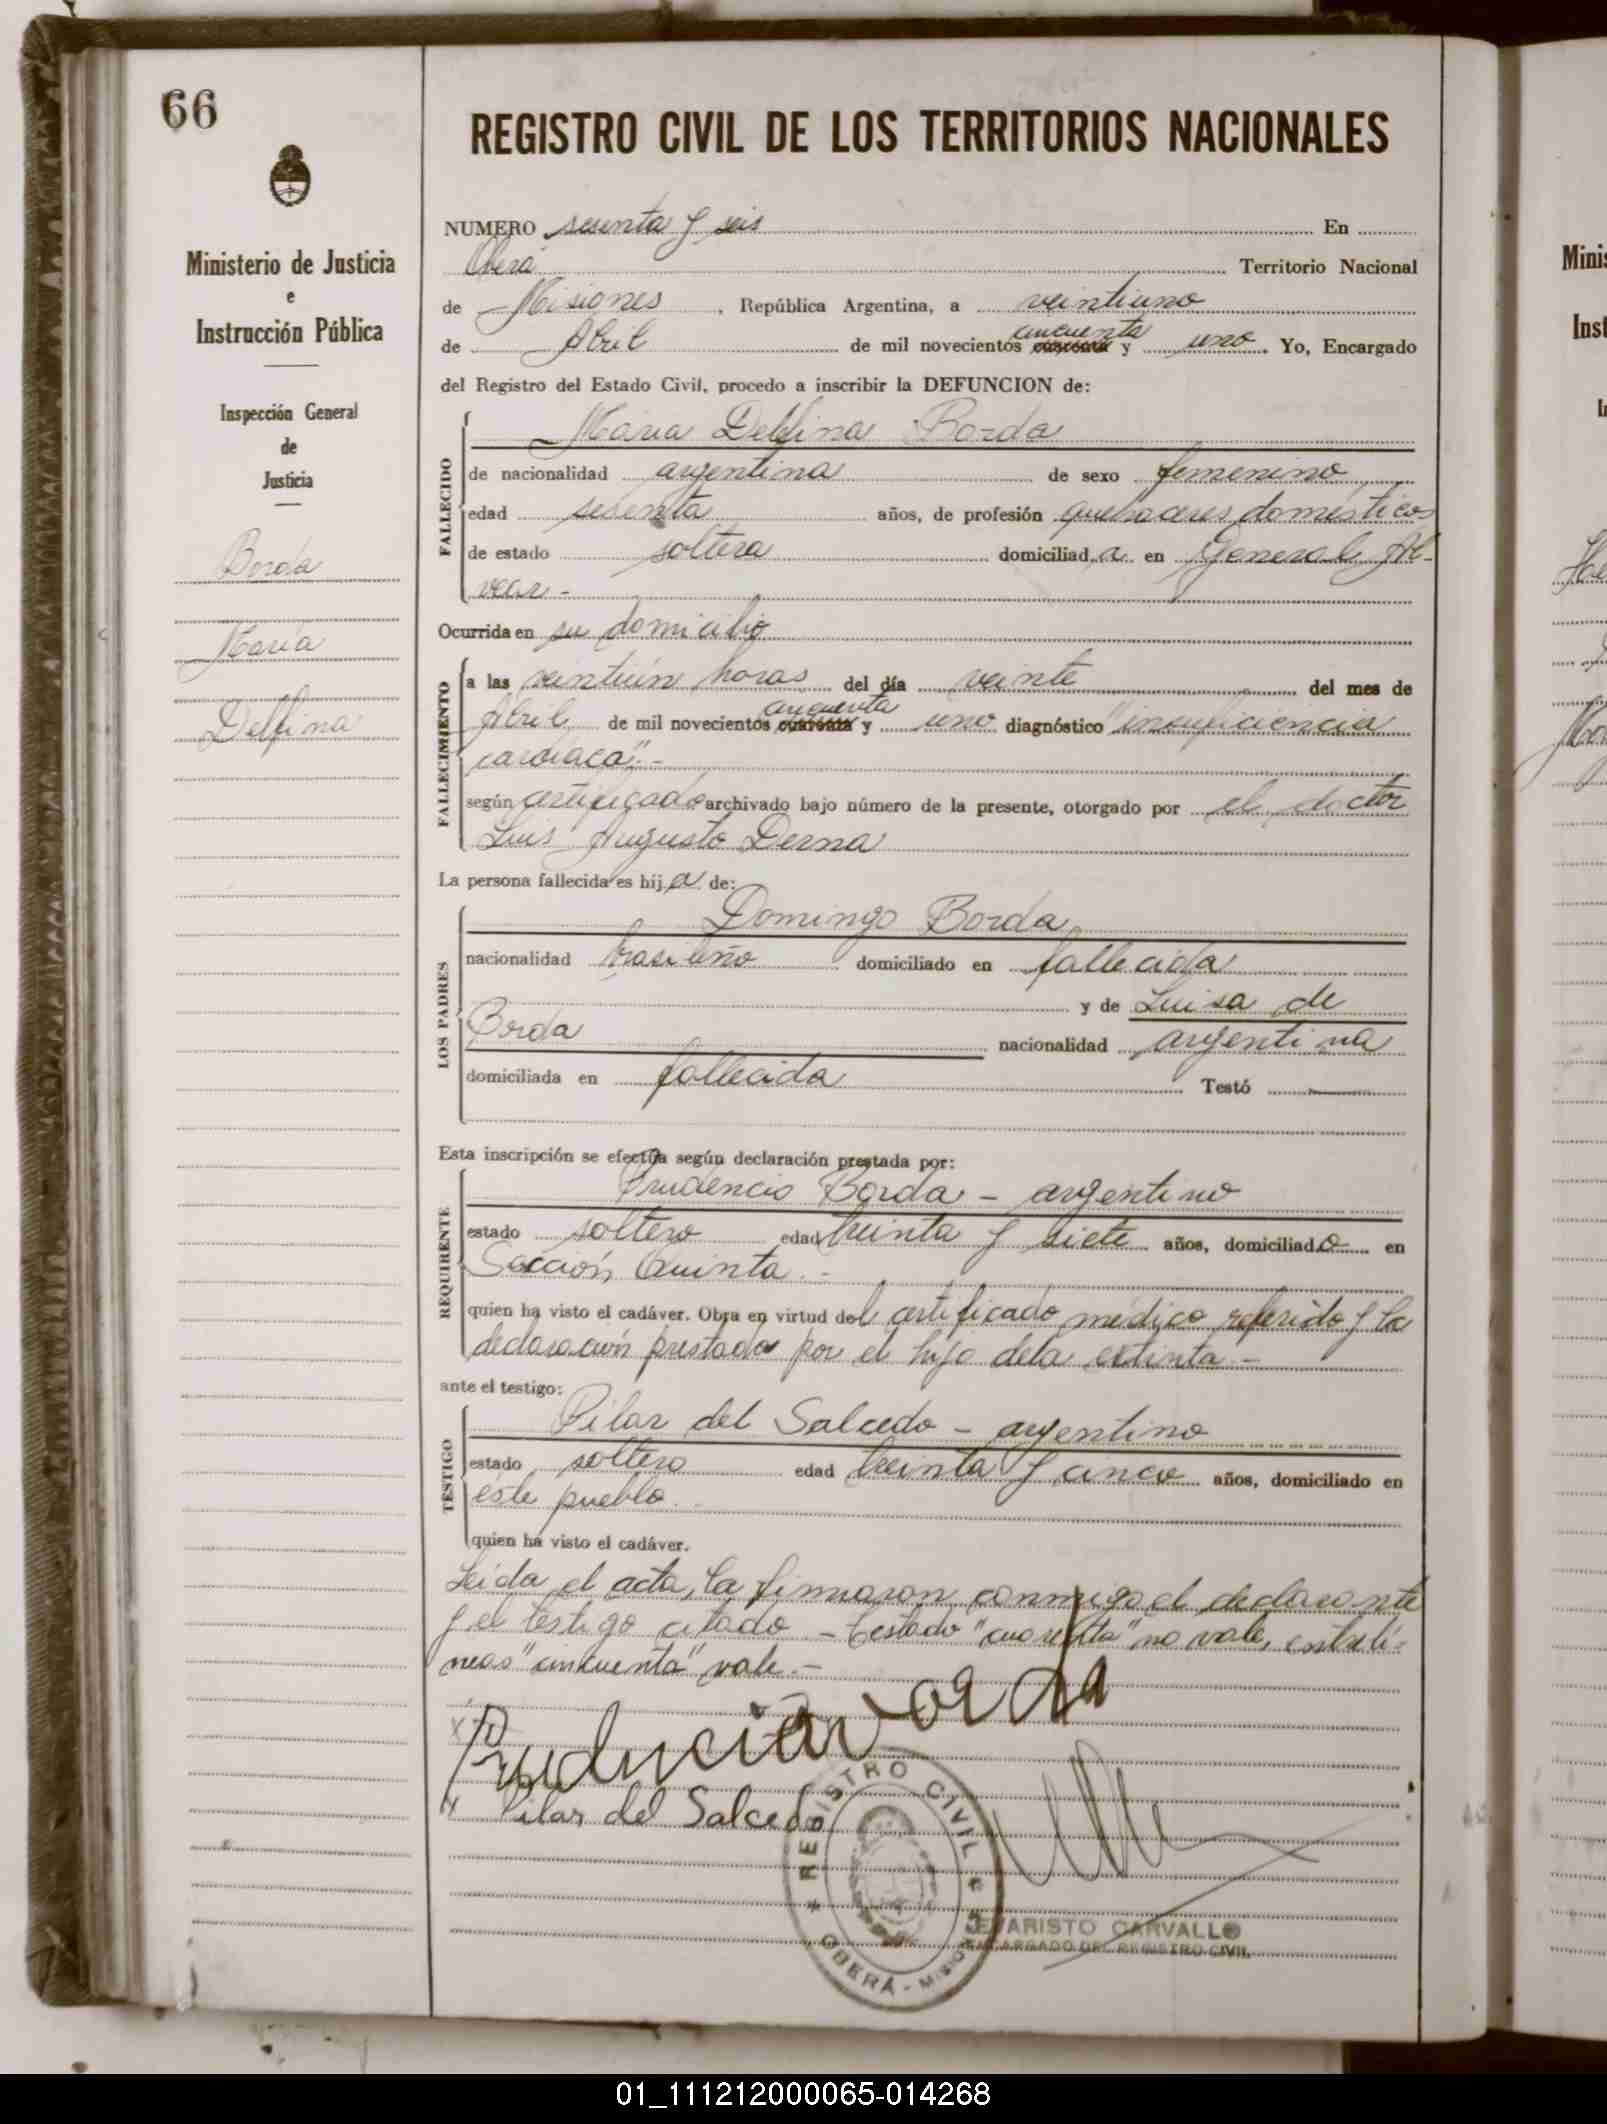 66
Ministerio de Justicia
e
Instrucción Pública
Inspección General
de
Justicia
Borda
María
Delfina
REGISTRO CIVIL DE LOS TERRITORIOS NACIONALES
NUMERO sesenta y seis En
Oberá Territorio Nacional
de Misiones, República Argentina, a veintiuno
cincuenta
de Abril de mil novecientos cuarenta y uno. Yo, Encargado
del Registro del Estado Civil, procedo a inscribir la DEFUNCION de:
FALLECIDO
María Delfina Borda
de nacionalidad argentina de sexo femenino
edad sesenta años, de profesión quehaceres domésticos
de estado soltera domiciliada en General Al-
vear-
Ocurrida en su domicilio
FALLECIMIENTO
a las veintiún horas del día veinte del mes de
cincuenta
Abril de mil novecientos cuarenta y uno diagnóstico "insuficiencia
cardiaca".-
según certificado archivado bajo número de la presente, otorgado por el doctor
Luis Augusto Derna
La persona fallecida es hija de:
LOS PADRES
Domingo Borda
nacionalidad brasileño domiciliado en fallecida
y de Luisa de
Borda nacionalidad argentina
domiciliada en fallecida Testó
Esta inscripción se efectúa según declaración prestada por:
REQUIRENTE
Prudencio Borda - argentino
estado soltero edad treinta y siete años, domiciliado en
Sección Quinta.-
quien ha visto el cadáver. Obra en virtud del certificado médico referido y la
declaración prestada por el hijo dela extinta.-
ante el testigo:
TESTIGO
Pilar del Salcedo - argentino
estado soltero edad treinta y cinco años, domiciliado en
éste pueblo.
quien ha visto el cadáver.
Leida el acta, la firmaron conmigo el declarante
y el testigo citado - testado "cuarenta" no vale, entrelí-
neas "cincuenta" vale.-
Pilar del Salcedo
REGISTRO CIVIL
OBERÁ - MISIONES
EVARISTO CARVALLO
ENCARGADO DEL REGISTRO CIVIL
Minis
Inst
01_111212000065-014268